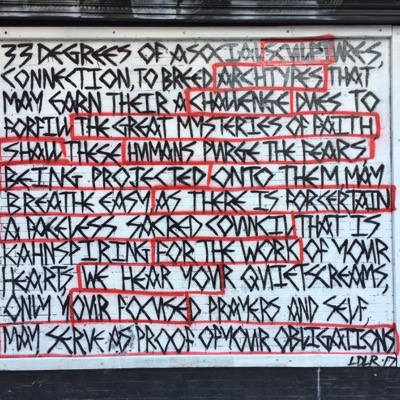 33 DEGREES OF ASOCIAL SCULPTURES,
CONNECTION, TO BREED ARCHTYPES THAT
MAY EARN THEIR A CHALLENGE DUES TO
THE GREAT MYSTERIES OF FAITH,
SHALL THESE HUMANS PURGE THE FEARS
BEING PROJECTED ONTO THEM MAY
BREATHE EASY AS THERE IS FORCERTAIN
A FACELESS SACRED COUNCIL THAT IS
KAHNSPIRING FOR THE WORK OF YOUR
HEARTS, WE HEAR YOUR QUIETSCREAMS,
ONLY YOUR FOCUSED PRAYERS AND SELF,
MAY SERVE AS PROOF OF YOUR OBLIGATIONS
LDLR.17